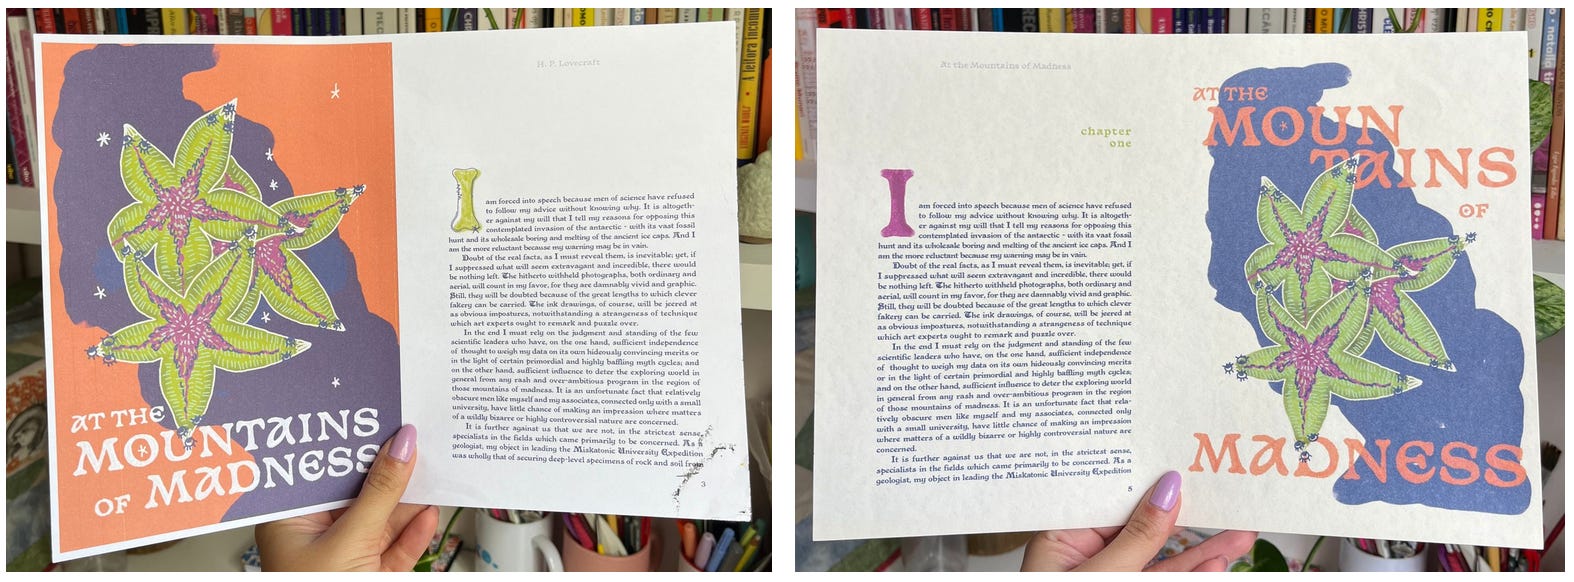 AT THE
MOUNTAINS
OF MADNESS
H. P. Lovecraft
I am forced into speech because men of science have refused
to follow my advice without knowing why. It is altogeth-
er against my will that I tell my reasons for opposing this
contemplated invasion of the antarctic - with its vast fossil
hunt and its wholesale boring and melting of the ancient ice caps. And I
am the more reluctant because my warning may be in vain.
Doubt of the real facts, as I must reveal them, is inevitable; yet, if
I suppressed what will seem extravagant and incredible, there would
be nothing left. The hitherto withheld photographs, both ordinary and
aerial, will count in my favor, for they are damnably vivid and graphic.
Still, they will be doubted because of the great lengths to which clever
fakery can be carried. The ink drawings, of course, will be jeered at
as obvious impostures, notwithstanding a strangeness of technique
which art experts ought to remark and puzzle over.
In the end I must rely on the judgment and standing of the few
scientific leaders who have, on the one hand, sufficient independence
of thought to weigh my data on its own hideously convincing merits or
in the light of certain primordial and highly baffling myth cycles; and
on the other hand, sufficient influence to deter the exploring world in
general from any rash and over-ambitious program in the region of
those mountains of madness. It is an unfortunate fact that relatively
obscure men like myself and my associates, connected only with a small
university, have little chance of making an impression where matters
of a wildly bizarre or highly controversial nature are concerned.
It is further against us that we are not, in the strictest sense,
specialists in the fields which came primarily to be concerned. As a
geologist, my object in leading the Miskatonic University Expedition
was wholly that of securing deep-level specimens of rock and soil from
3
At the Mountains of Madness
chapter
one
I am forced into speech because men of science have refused
to follow my advice without knowing why. It is altogeth-
er against my will that I tell my reasons for opposing this
contemplated invasion of the antarctic - with its vast fossil
hunt and its wholesale boring and melting of the ancient ice caps. And I
am the more reluctant because my warning may be in vain.
Doubt of the real facts, as I must reveal them, is inevitable; yet, if
I suppressed what will seem extravagant and incredible, there would
be nothing left. The hitherto withheld photographs, both ordinary and
aerial, will count in my favor, for they are damnably vivid and graphic.
Still, they will be doubted because of the great lengths to which clever
fakery can be carried. The ink drawings, of course, will be jeered at
as obvious impostures, notwithstanding a strangeness of technique
which art experts ought to remark and puzzle over.
In the end I must rely on the judgment and standing of the few
scientific leaders who have, on the one hand, sufficient independence
of thought to weigh my data on its own hideously convincing merits
or in the light of certain primordial and highly baffling myth cycles;
and on the other hand, sufficient influence to deter the exploring world
in general from any rash and over-ambitious program in the region
of those mountains of madness. It is an unfortunate fact that rela-
tively obscure men like myself and my associates, connected only
with a small university, have little chance of making an impression
where matters of a wildly bizarre or highly controversial nature are
concerned.
It is further against us that we are not, in the strictest sense,
specialists in the fields which came primarily to be concerned. As a
geologist, my object in leading the Miskatonic University Expedition
5
AT THE
MOUN
TAINS
OF
MADNESS
A leitora incomum